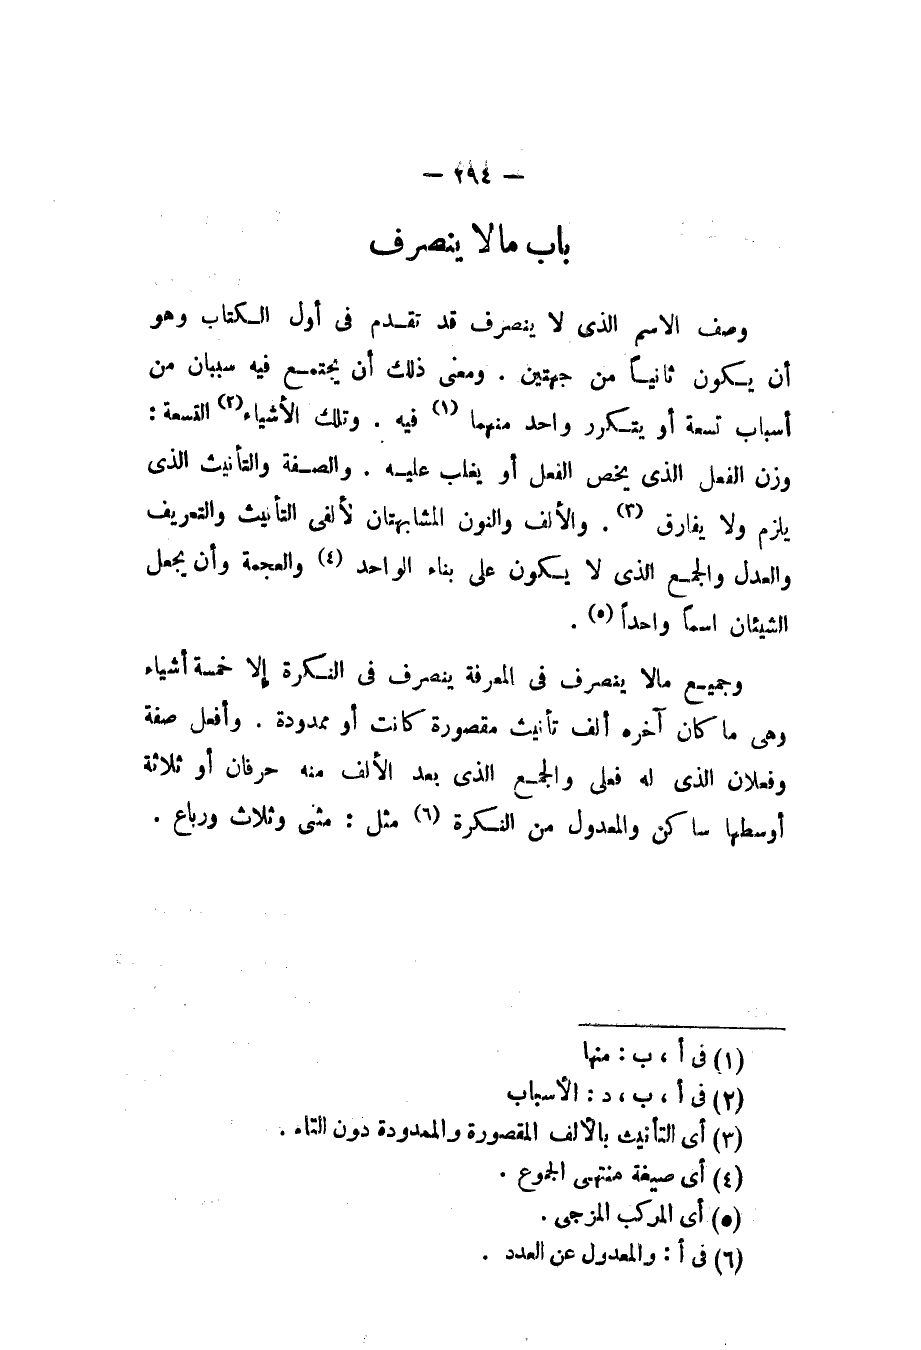 — ٢٩٤ —
باب مالا ينصرف
وصف الاسم الذى لا ينصرف قد تقـدم فى أول الـكتاب وهو
أن يـكون ثانيـاً من جهتين . ومعنى ذلك أن يجتمـع فيه سببان من
أسباب تسعة أو يتـكرر واحد منهما (١) فيه . وتلك الأشياء(٢) التسعة :
وزن الفعل الذى يخص الفعل أو يغلب عليـه . والصـفة والتأنيث الذى
يلزم ولا يفارق (٣) . والألف والنون المشابهتان لألفى التأنيث والتعريف
والعدل والجمـع الذى لا يـكون على بناء الواحد (٤) والعجمة وأن يجعل
الشيئان اسماً واحداً (٥) .
وجميـع مالا ينصرف فى المعرفة ينصرف فى النـكرة إلا خمسة أشياء
وهى ما كان آخره ألف تأنيث مقصورة كانت أو ممدودة . وأفعل صفة
وفعلان الذى له فعلى والجمـع الذى بعد الألف منه حرفان أو ثلاثة
أوسطها ساكن والمعدول من النـكرة (٦) مثل : مثنى وثلاث ورباع .
(١) فى أ ، ب : منها
(٢) فى أ ، ب ، د : الأسباب
(٣) أى التأنيث بالألف المقصورة والممدودة دون التاء .
(٤) أى صيغة منتهى الجموع .
(٥) أى المركب المزجى .
(٦) فى أ : والمعدول عن العدد .